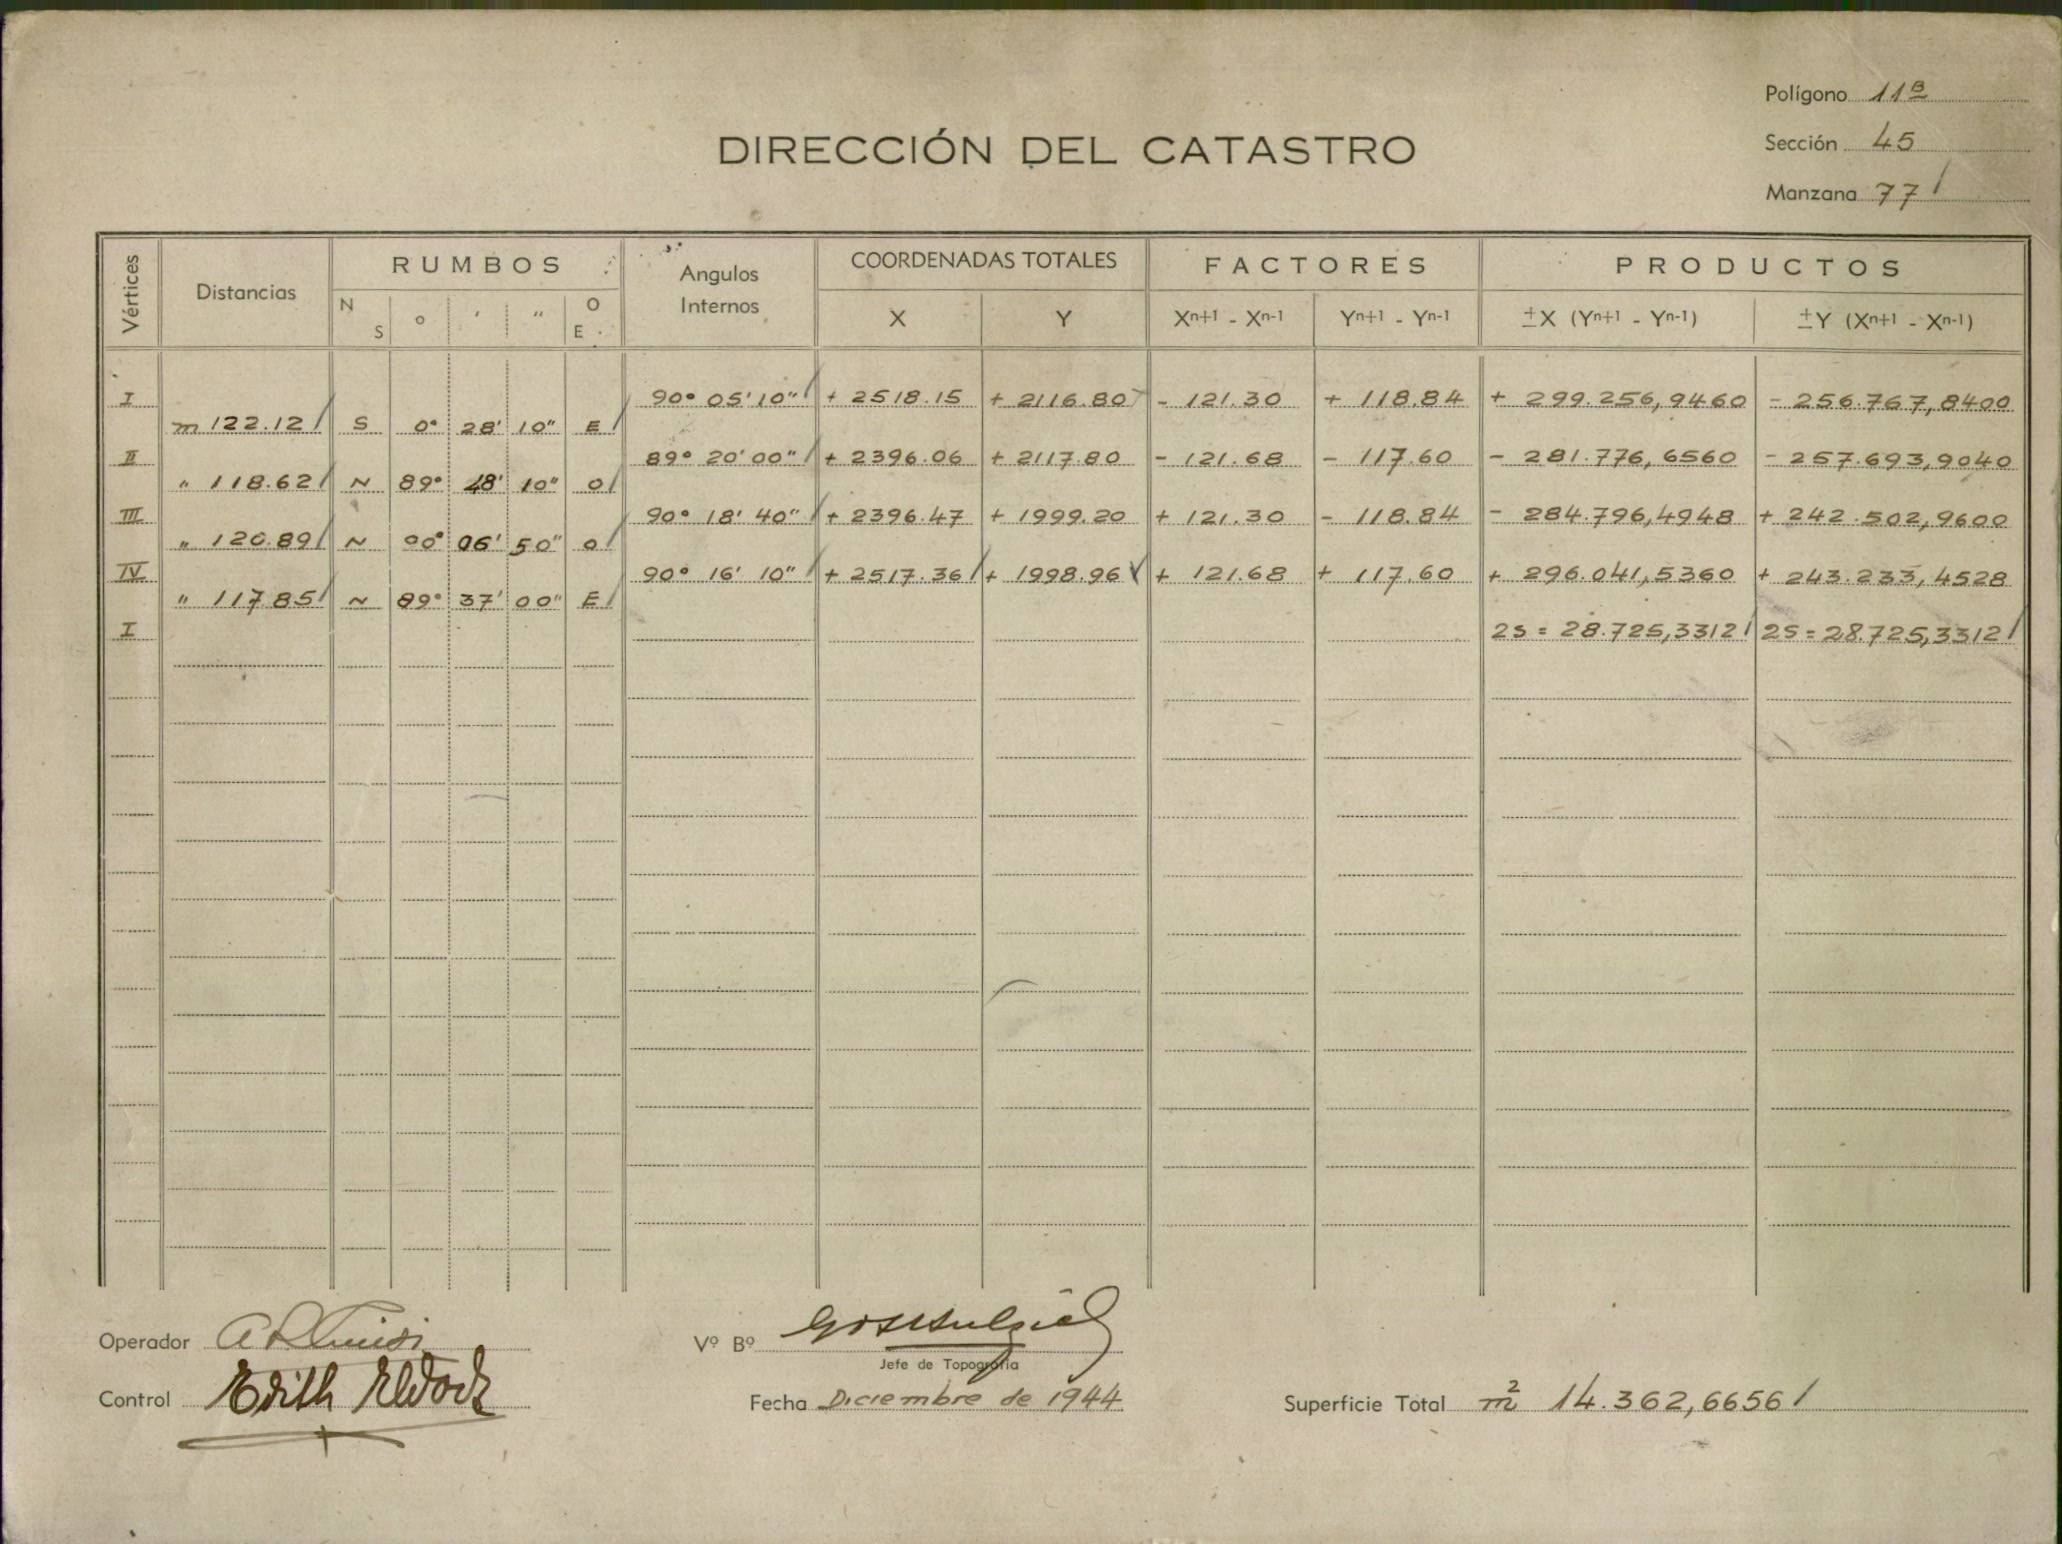 Polígono 11B
Sección 45
Manzana 77
DIRECCIÓN DEL CATASTRO
Vértices Distancias RUMBOS Angulos Internos COORDENADAS TOTALES FACTORES PRODUCTOS
N S o ' " O E X Y Xn+1 - Xn-1 Yn+1 - Yn-1 ±X (Yn+1 - Yn-1) ±Y (Xn+1 - Xn-1)
I 90° 05' 10" + 2518.15 + 2116.80 - 121.30 + 118.84 + 299.256,9460 - 256.767,8400
m 122.12 S 0° 28' 10" E
II 89° 20' 00" + 2396.06 + 2117.80 - 121.68 - 117.60 - 281.776,6560 - 257.693,9040
" 118.62 N 89° 48' 10" O
III 90° 18' 40" + 2396.47 + 1999.20 + 121.30 - 118.84 - 284.796,4948 + 242.502,9600
" 120.89 N 00° 06' 50" O
IV 90° 16' 10" + 2517.36 + 1998.96 + 121.68 + 117.60 + 296.041,5360 + 243.233,4528
" 117.85 N 89° 37' 00" E
I 2S = 28.725,3312 2S = 28.725,3312
Operador
Vº Bº
Jefe de Topografía
Control Edith
Fecha Diciembre de 1944
Superficie Total m² 14.362,6656